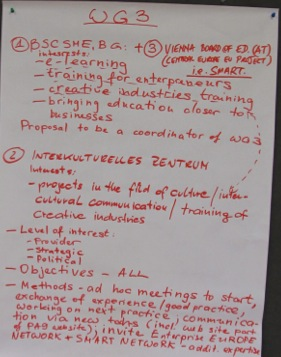 WG3
① BSC SHE, BG: + ③ VIENNA BOARD OF ED. (AT)
(CENTROPE EUROPE EU PROJECT)
i.e. SMART.
interests:
- e-learning
- training for enterpreneurs
- creative industries training
- bringing education closer to businesses
Proposal to be a coordinator of WG3
② INTERKULTURELLES ZENTRUM
Interests:
- projects in the field of culture/inter-
cultural communication/training of
creative industries
- Level of interest:
- Provider
- Strategic
- Political
- Objectives - ALL
- Methods - ad hoc meetings to start,
exchange of experience/good practice,
working on next practice; communica-
tion via new tools (incl. web site part
of PA9 website); invite Enterprise EUROPE
NETWORK + SMART NETWORK - addit. expertise